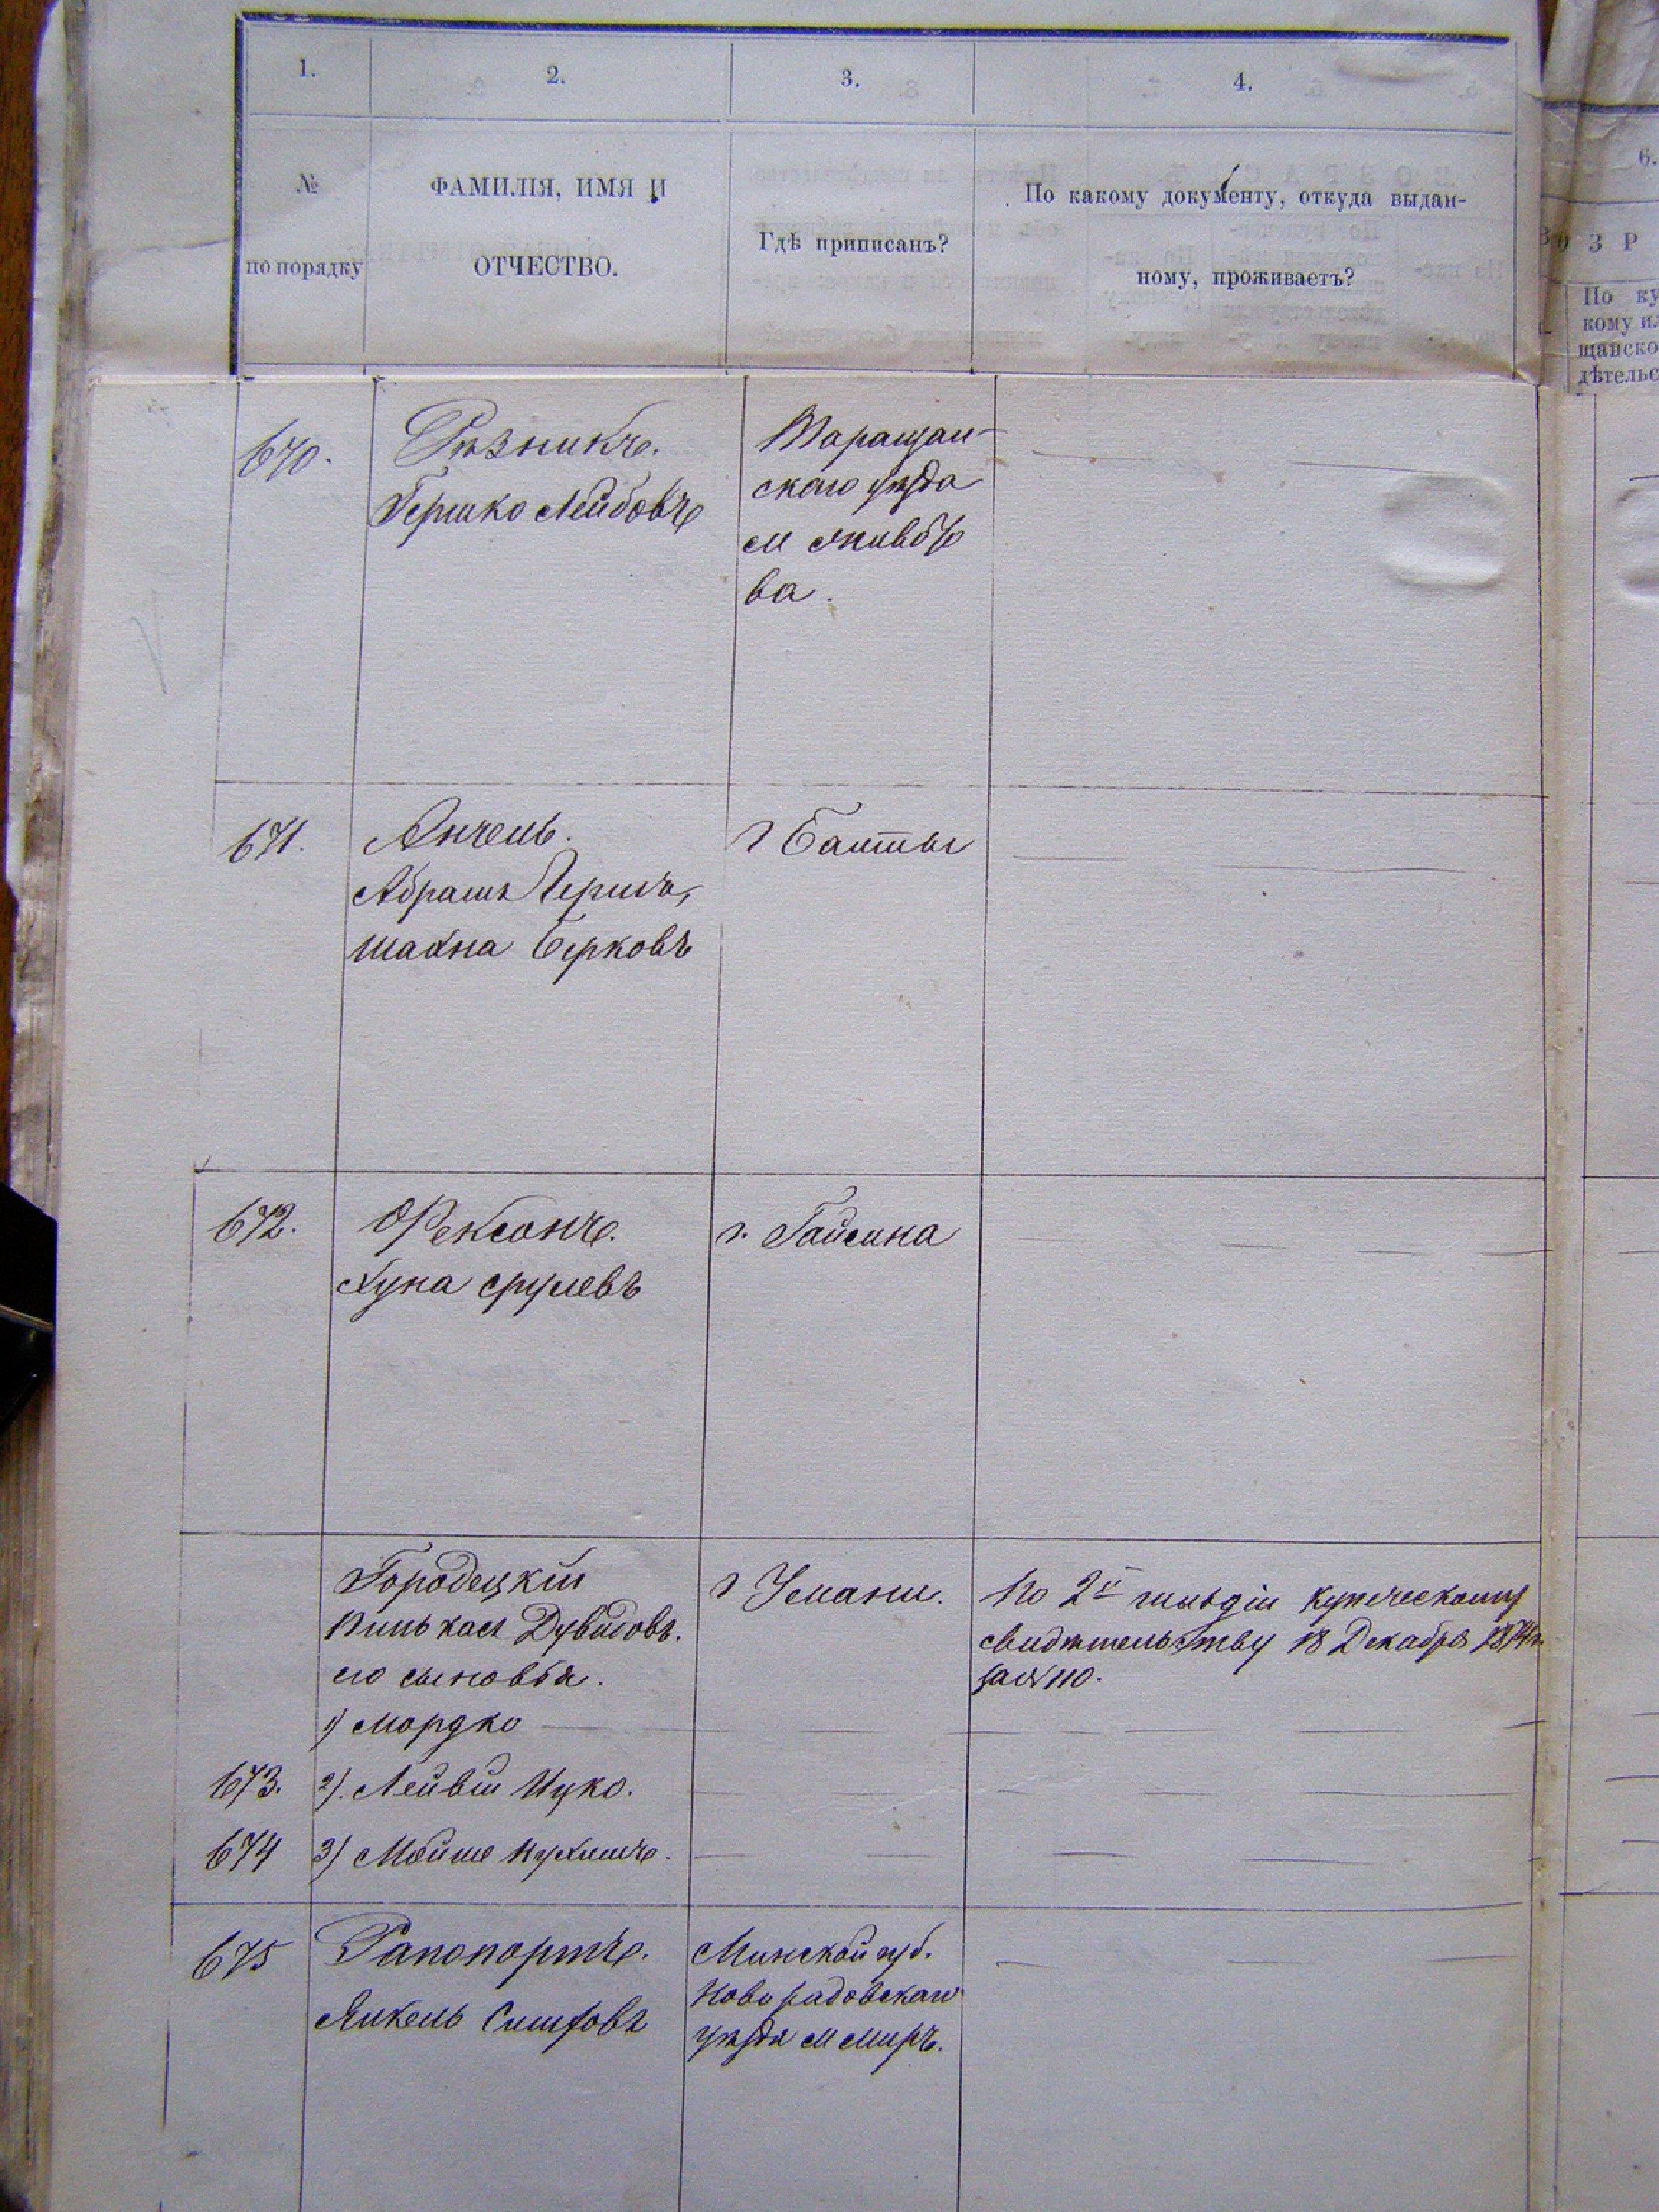 1. 2. 3. 4.
№ по порядку
ФАМИЛІЯ, ИМЯ И
ОТЧЕСТВО.
Гдѣ приписанъ?
По какому документу, откуда выдан-
ному, проживаетъ?
6.
В О З Р
По ку
кому ил
щанско
дѣтельс
670.
Рѣзникъ.
Гершко Лейбовъ
Таращан-
скаго уѣзда
м
ва.
671.
Анчель.
Абрамъ Гершъ,
Шахна Берковъ
г Балты
672.
Фексонъ.
Хуна Срулевъ
г. Гайсина
Городецкій
Пинькас Дувидовъ.
его сыновья.
1) Мордко
673. 2). Лейви Ицко.
674 3) Мойше Нухимъ.
г Умани.
По 2й гильдіи купеческому
свидѣтельству 18 Декабря 1874 г.
за № 110.
675
Рапопортъ.
Янкель
Минской губ.
уѣзда м Миръ.